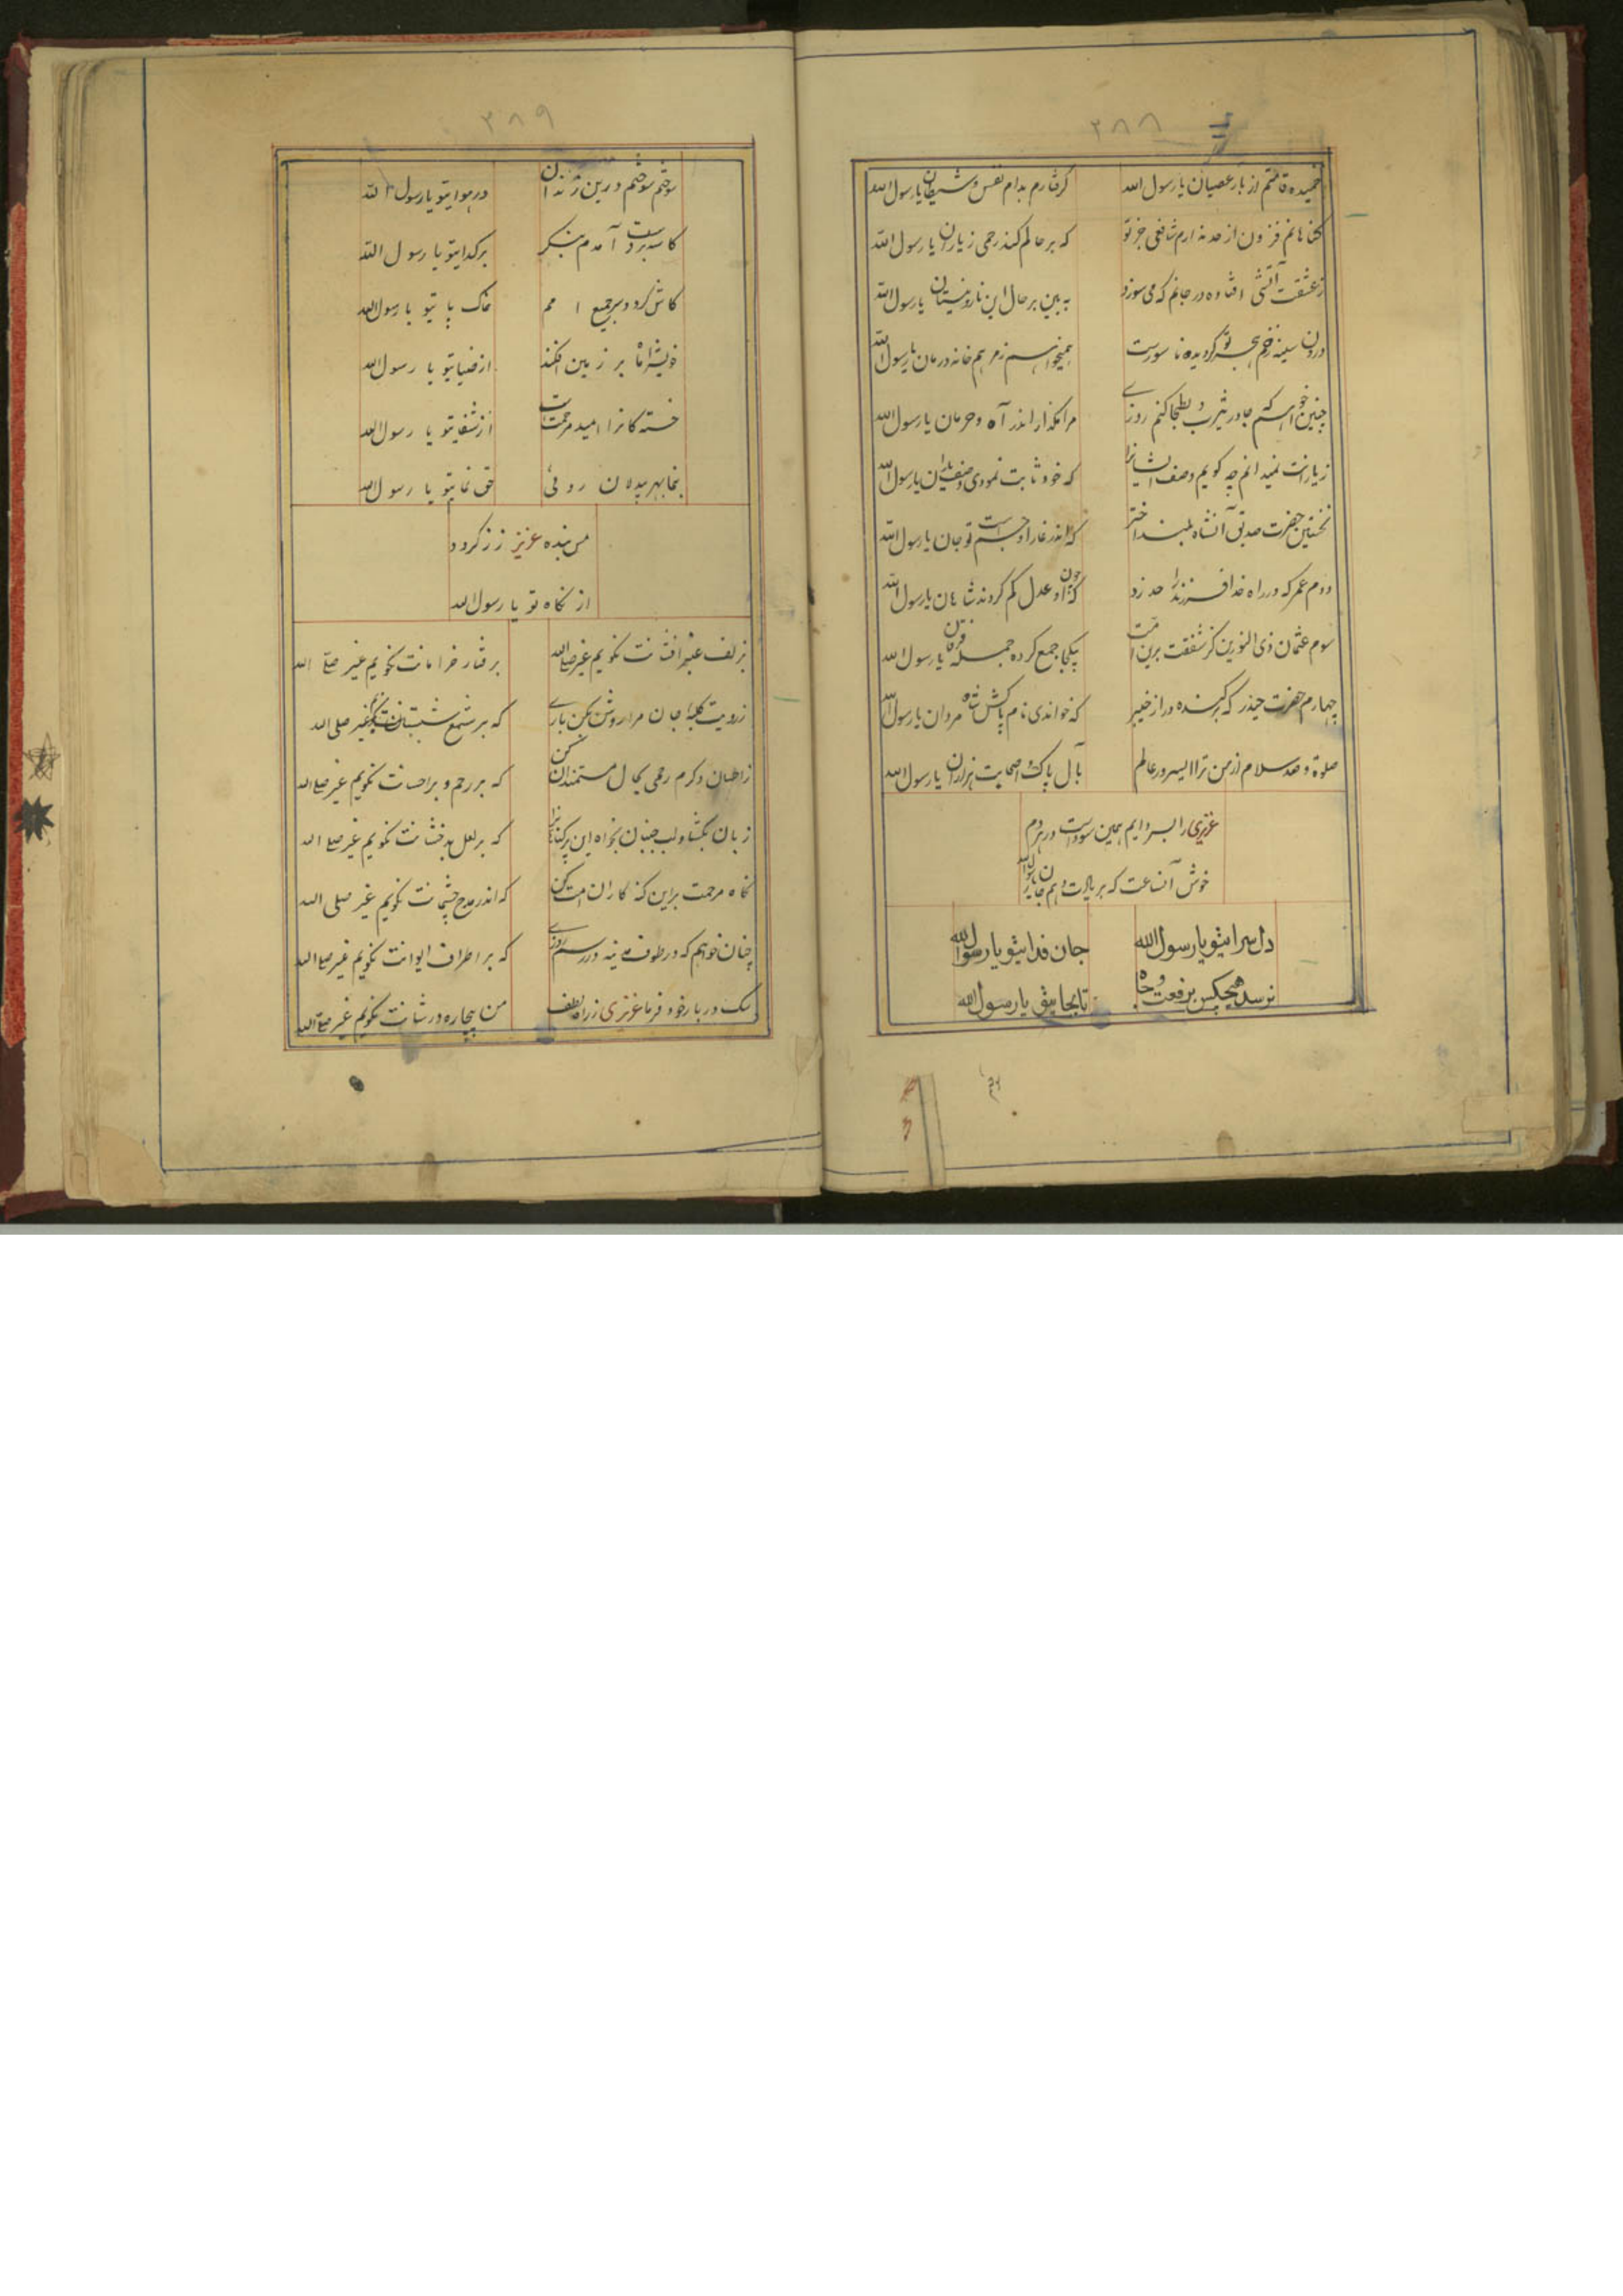 ۳۸۸
خمیده قامتم از بار عصیان یا رسول الله
گرفتارم بدام نفس و شیطان یا رسول الله
گناهانم فزون از حد ندارم شافعی جز تو
که بر حالم کند رحمی زیاران یا رسول الله
ز عشقت آتشی افتاده در جانم که می سوزد
به بین بر حال این نار نیستان یا رسول الله
درون سینه زخم هجر تو گردیده ناسورست
همیخواهم ز مرهم خانه درمان یا رسول الله
چنین خواهم که جا در یثرب و بطحا کنم روزے
مرا مگذار اندر آه و حرمان یا رسول الله
زیارانت نمیدانم چه گویم وصف ایشانرا
که خود ثابت نمودی یا رسول الله
نخستین حضرت صدیق آنشاه بلند اختر
که اندر غار او جست تو جان یا رسول الله
دوم عمر که در راه خدا فرزند را حد زد
که از عدل کم گردند شاهان یا رسول الله
سوم عثمان ذی النورین کز شفقت برین امت
یکجا جمع کرده جمله قرآن یا رسول الله
چهارم حضرت حیدر که برکنده در از خیبر
که خواندی نام پاکش شاه مردان یا رسول الله
صلوة و صد سلام از من ترا ایسرور عالم
بآل پاک و اصحابت هزاران یا رسول الله
عزیزی را بسر دایم همین سوداست در هر دم
خوش آنساعت که بر پایت دهم جان یا رسول الله
دل سرایتو یا رسول الله
جان فدایتو یا رسول الله
نرسد هیچکس برفعت و جاه
تابجایتو یا رسول الله
۳۸۹
سوختم سوختم درین زندان
در هوایتو یا رسول الله
کاسه بر دست آمدم بنگر
بر گدایتو یا رسول الله
کاش گردد بر جمیع امم
خاک پایتو یا رسول الله
خویش را ماه بر زمین افکند
از ضیایتو یا رسول الله
خستگانرا امید مرحمت است
از شفایتو یا رسول الله
بنما بهر دیدن روئی
حق نمایتو یا رسول الله
مس بنده عزیز زر گردد
از نگاه تو یا رسول الله
بزلف عنبر افشانت نگویم غیر صلی الله
برفتار خرامانت نگویم غیر صلی الله
ز رویت کلبهٔ جان مرا روشن بکن بارے
که بر شمع شبستانت نگویم غیر صلی الله
ز احسان و کرم رحمی بحال مستمندان کن
که بر رحم و بر احسانت نگویم غیر صلی الله
زبان بگشا و لب جنبان بخواه این پر گناهانرا
که بر لعل بدخشانت نگویم غیر صلی الله
نگاه مرحمت بر این گنه کاران امت کن
که اندر مدح چشمانت نگویم غیر صلی الله
چنان خواهم که در طوف مدینه در رسم روزے
که بر اطراف ایوانت نگویم غیر صلی الله
سگ دربار خود فرما عزیزی را ز راه لطف
من بیچاره در شانت نگویم غیر صلی الله